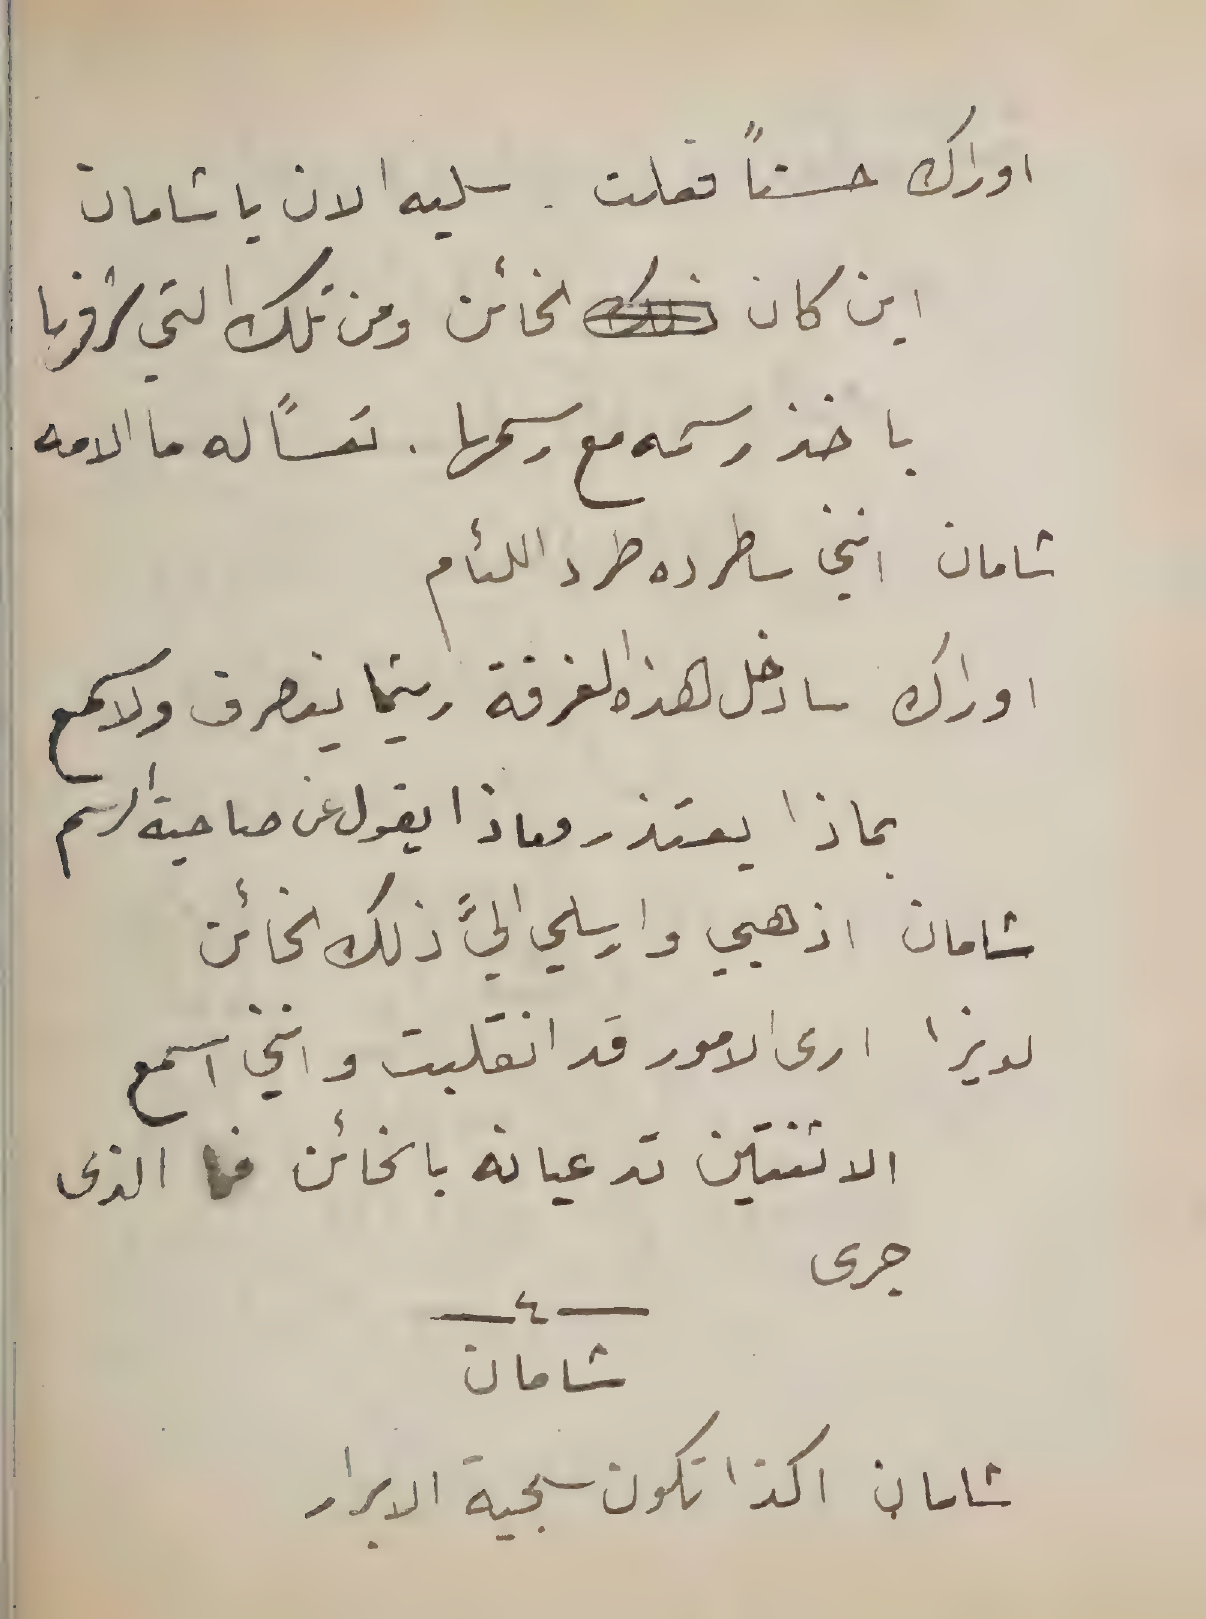 اوراك حسناً فعلت . سليه الان يا شامان
اين كان ذلك الخائن ومن تلك التي شرفها
باخذ رسمه مع رسمها . تعساً له ما الامه
شامان انني ساطرده طرد اللئام
اوراك سادخل لهذه الغرفة ريثما ينصرف ولاسمع
بماذا يعتذر وماذا يقول عن صاحبة الرسم
شامان اذهبي وارسلي اليَّ ذلك الخائن
لويزا ارى الامور قد انقلبت وانني اسمع
الاثنتين تدعيانه بالخائن فما الذى
جرى
— ٤ —
شامان
شامان اكذا تكون سجية الابرار